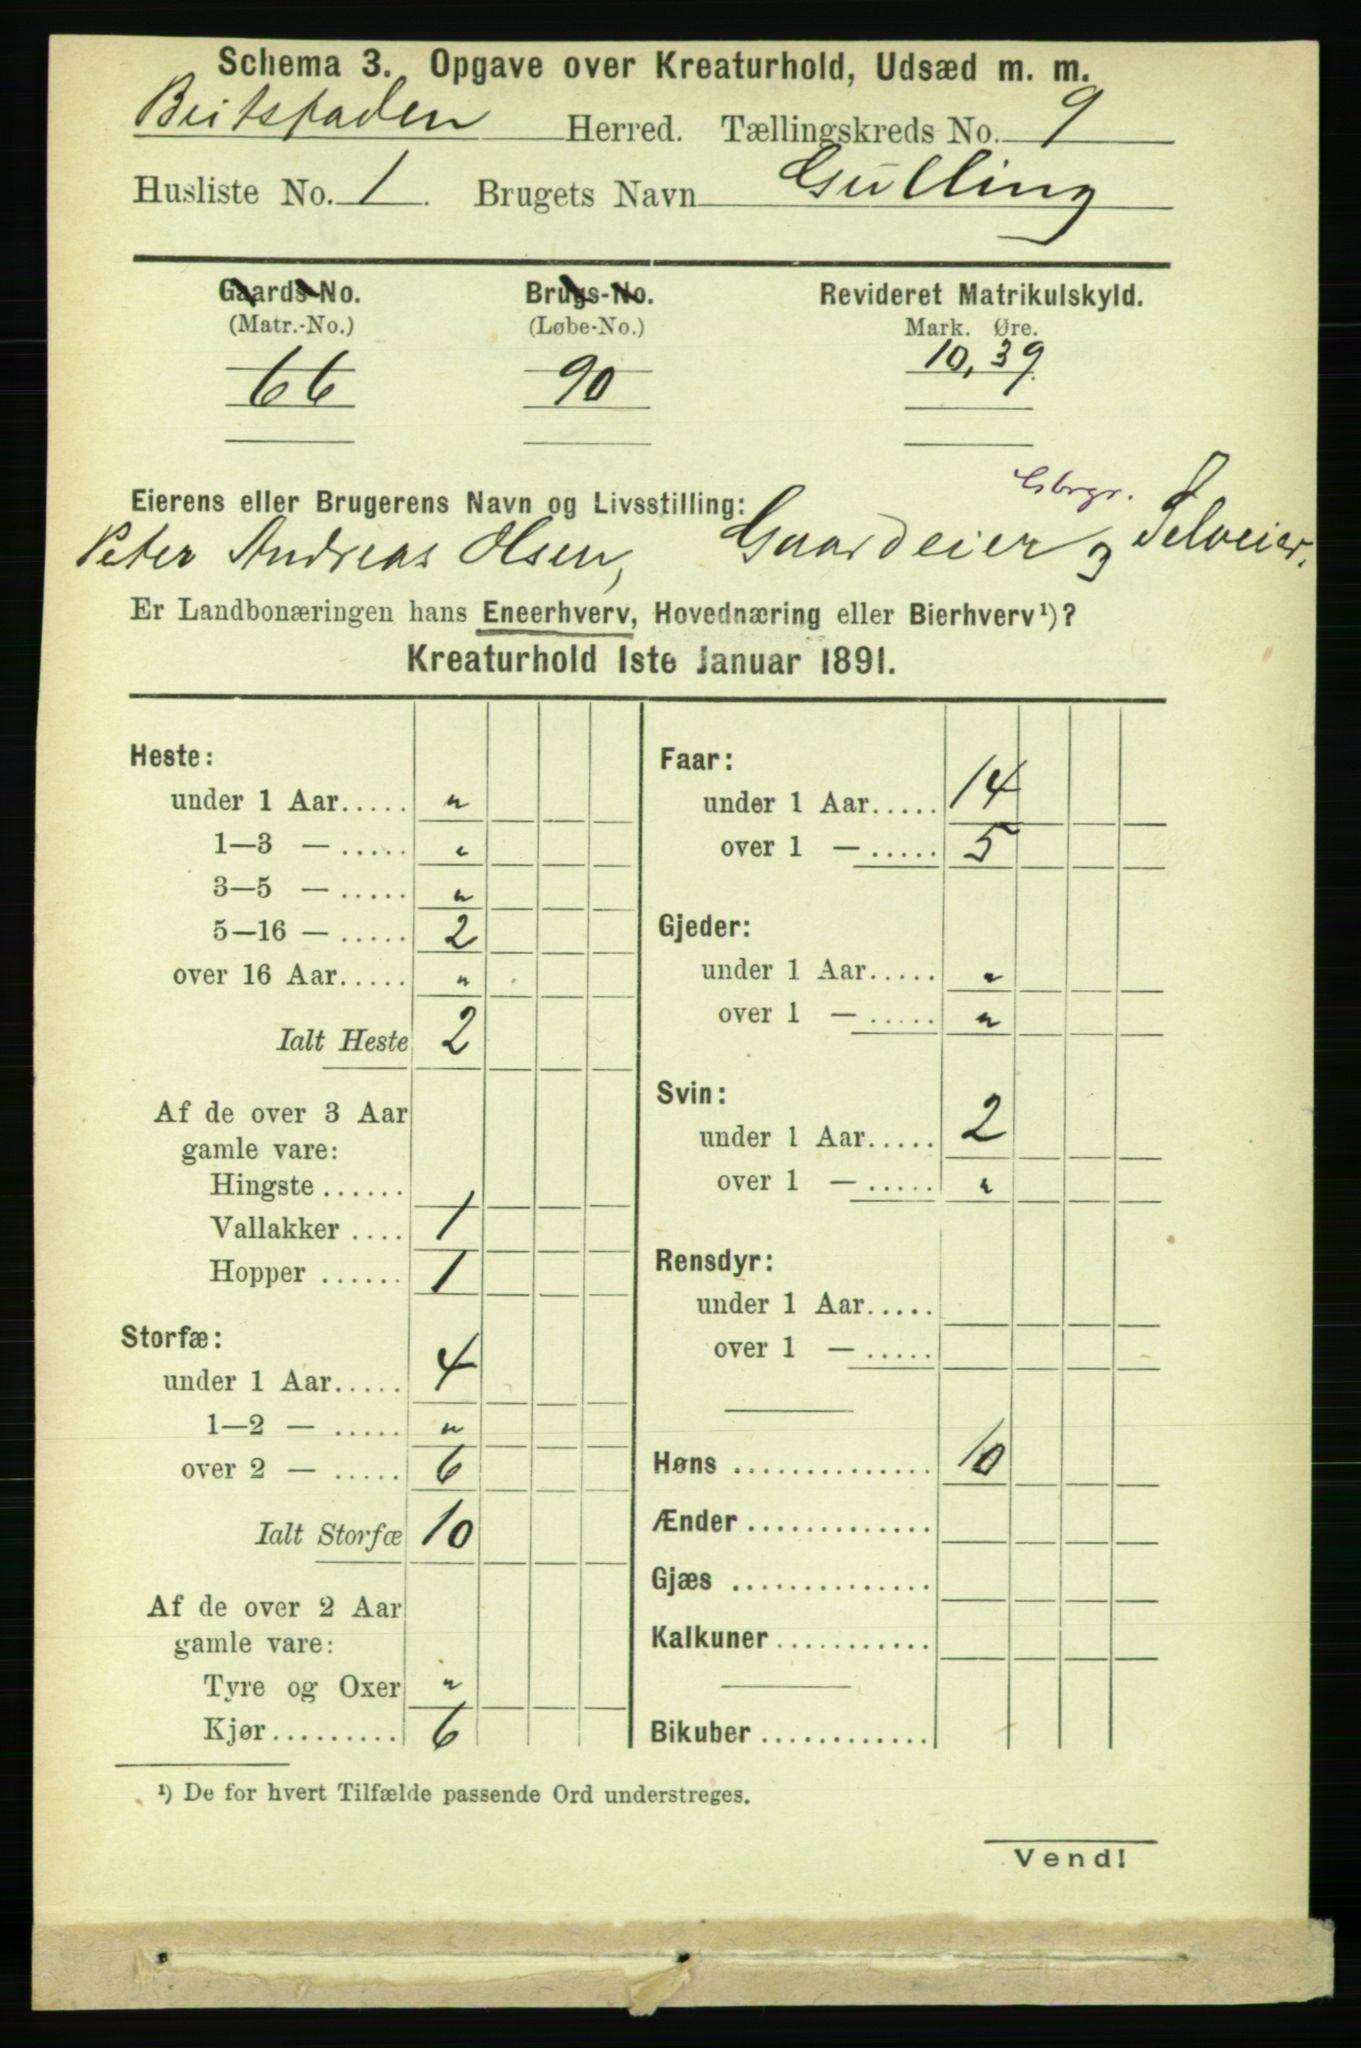 Schema 3. Opgave over Kreaturhold, Udsæd m. m.
Beitstaden Herred. Tællingskreds No. 9
Husliste No. 1. Brugets Navn Gulling
Gaards-No. Brugs-No. Revideret Matrikulskyld.
(Matr.-No.) (Løbe-No.) Mark. Øre.
66 90 10,39.
Gbrgr.
Eierens eller Brugerens Navn og Livsstilling:
Peter Andreas Olsen, Gaardeier og Selveier.
Er Landbonæringen hans Eneerhverv, Hovednæring eller Bierhverv¹)?
Kreaturhold 1ste Januar 1891.
Heste:
under 1 Aar..... "
1—3 — ..... "
3—5 — ..... "
5—16 — ..... 2
over 16 Aar..... "
Ialt Heste 2
Af de over 3 Aar
gamle vare:
Hingste ......
Vallakker .... 1
Hopper ...... 1
Storfæ:
under 1 Aar..... 4
1—2 — ..... "
over 2 — ..... 6
Ialt Storfæ 10
Af de over 2 Aar
gamle vare:
Tyre og Oxer "
Kjør......... 6
Faar:
under 1 Aar..... 14
over 1 — ..... 5
Gjeder:
under 1 Aar..... "
over 1 — ..... "
Svin:
under 1 Aar..... 2
over 1 — ..... "
Rensdyr:
under 1 Aar.....
over 1 — .....
Høns .............. 10
Ænder .............
Gjæs ..............
Kalkuner ...........
Bikuber ............
¹) De for hvert Tilfælde passende Ord understreges.
Vend!